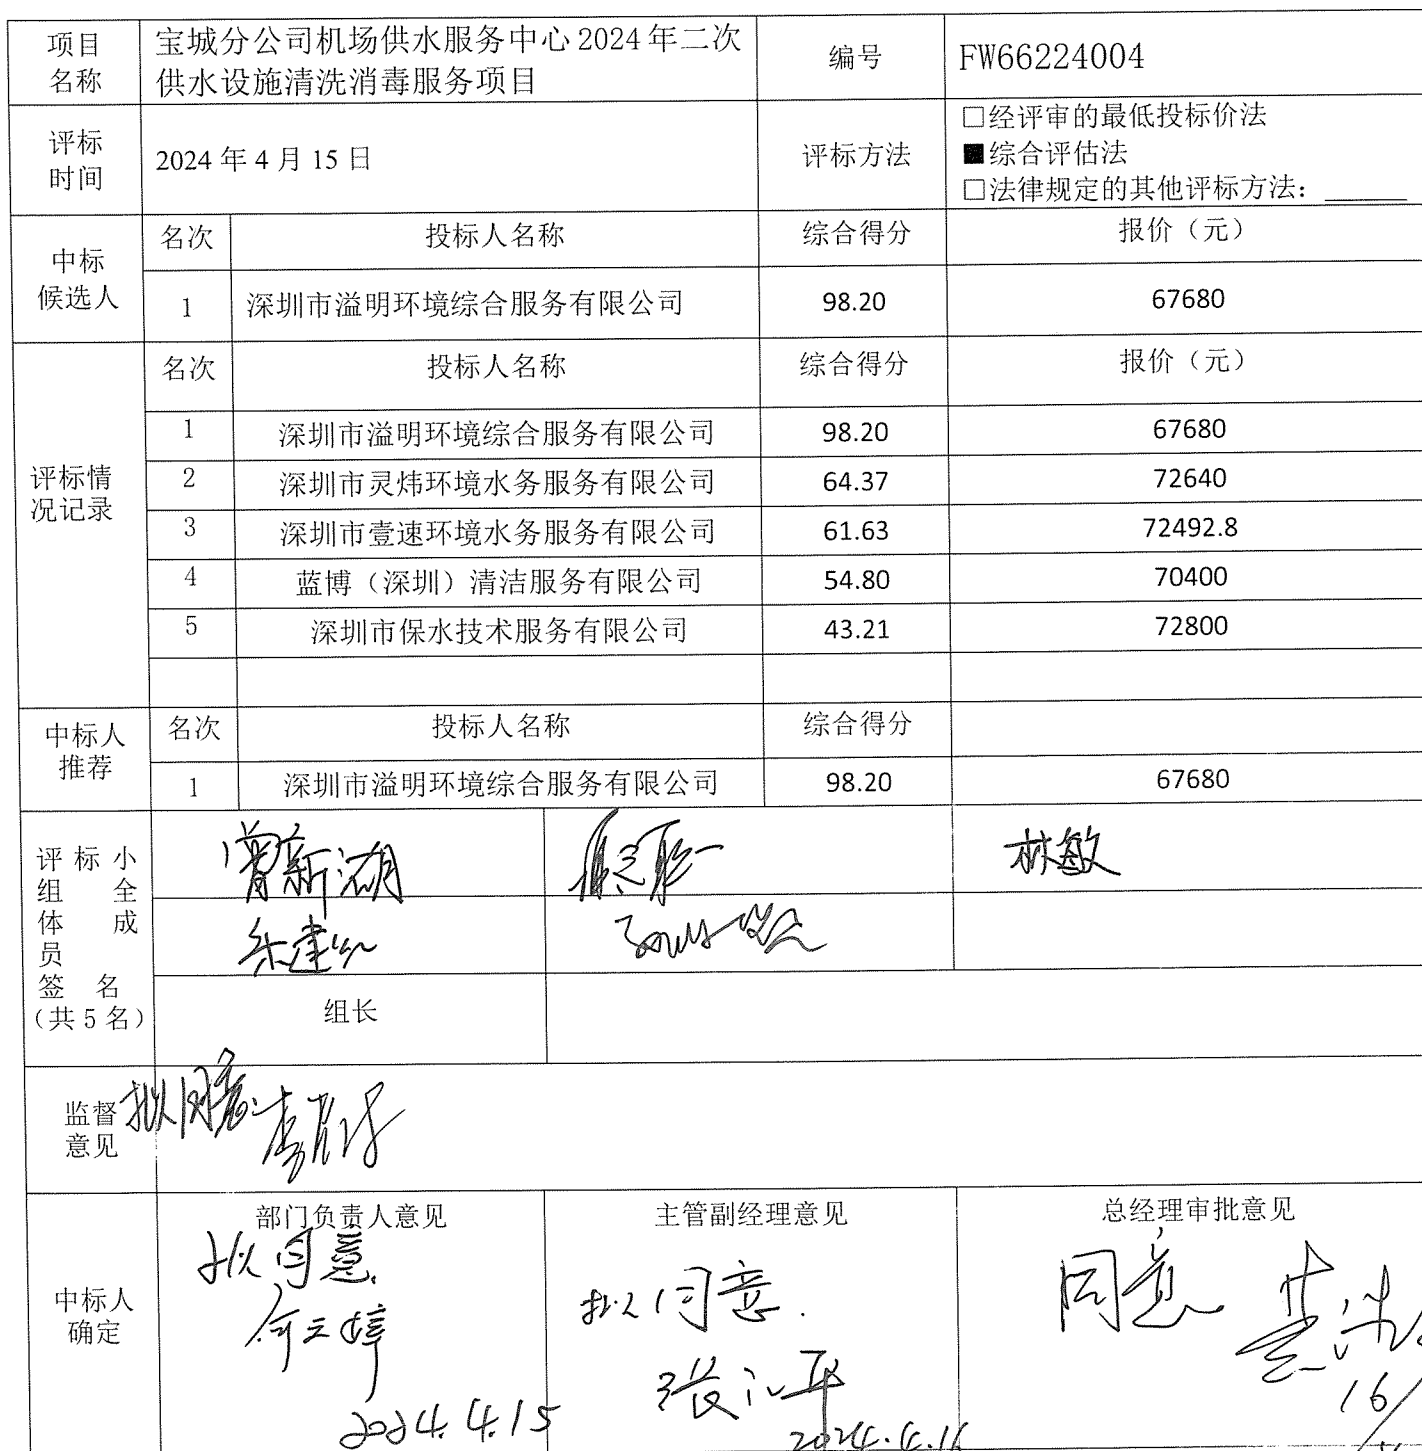 项目名称 宝城分公司机场供水服务中心2024年二次供水设施清洗消毒服务项目 编号 FW66224004
评标时间 2024年4月15日 评标方法
□经评审的最低投标价法
■综合评估法
□法律规定的其他评标方法：______
中标候选人 名次 投标人名称 综合得分 报价（元）
1 深圳市溢明环境综合服务有限公司 98.20 67680
评标情况记录 名次 投标人名称 综合得分 报价（元）
1 深圳市溢明环境综合服务有限公司 98.20 67680
2 深圳市灵炜环境水务服务有限公司 64.37 72640
3 深圳市壹速环境水务服务有限公司 61.63 72492.8
4 蓝博（深圳）清洁服务有限公司 54.80 70400
5 深圳市保水技术服务有限公司 43.21 72800
中标人推荐 名次 投标人名称 综合得分
1 深圳市溢明环境综合服务有限公司 98.20 67680
评标小组全体成员签名（共5名）
曾新湖 林敏
组长
监督意见 拟同意
中标人确定 部门负责人意见 主管副经理意见 总经理审批意见
拟同意 拟同意. 同意
2024.4.15 2024.4.16 16/